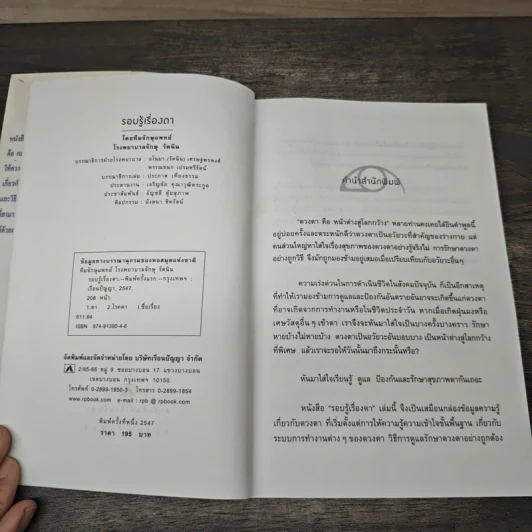 หนังสือ
คือ
ให้ควา
เกี่ยวกับ
และวิธี
ที่สามา
ได้ด้วย
รอบรู้เรื่องตา
โดยทีมจักษุแพทย์
โรงพยาบาลจักษุ รัตนิน
บรรณาธิการฝ่ายโรงพยาบาล : อโนมา (รัตนิน) เศรษฐพรพงศ์
พรรณชนก เปรมศรีรัตน์
บรรณาธิการเล่ม : ประภาส เที่ยงธรรม
ประสานงาน : เจริญชัย คุณาวุฒิตระกูล
ประชาสัมพันธ์ : ธัญชลี คุ้มสุภาพ
ศิลปกรรม : อังคนา ชิพรัตน์
ข้อมูลทางบรรณานุกรมของหอสมุดแห่งชาติ
ทีมจักษุแพทย์ โรงพยาบาลจักษุ รัตนิน
รอบรู้เรื่องตา.--พิมพ์ครั้งแรก.--กรุงเทพฯ :
เรือนปัญญา, 2547.
208 หน้า.
1.ตา 2.โรคตา I.ชื่อเรื่อง
611.84
ISBN 974-91390-4-6
จัดพิมพ์และจัดจำหน่ายโดย บริษัทเรือนปัญญา จำกัด
2/65-66 หมู่ 9 ซอยบางบอน 17 แขวงบางบอน
เขตบางบอน กรุงเทพฯ 10150
โทรศัพท์ 0-2899-1850-3 โทรสาร 0-2899-1854
www.rpbook.com e-mail : rpb @ rpbook.com
พิมพ์ครั้งที่หนึ่ง 2547
ราคา 195 บาท
คำนำสำนักพิมพ์
"ดวงตา คือ หน้าต่างสู่โลกกว้าง" หลายท่านคงเคยได้ยินคำพูดนี้
อยู่บ่อยครั้งและตระหนักดีว่าดวงตาเป็นอวัยวะที่สำคัญของร่างกาย แต่
คนส่วนใหญ่หาใส่ใจเรื่องสุขภาพของดวงตาอย่างรู้จริงไม่ การรักษาดวงตา
อย่างถูกวิธี จึงมักถูกมองข้ามอยู่เสมอเมื่อเปรียบเทียบกับอวัยวะอื่นๆ
ความเร่งด่วนในการดำเนินชีวิตในสังคมปัจจุบัน ก็เป็นอีกสาเหตุ
ที่ทำให้เรามองข้ามการดูแลและป้องกันอันตรายอันอาจจะเกิดขึ้นแก่ดวงตา
ที่อาจเกิดจากการทำงานหรือในชีวิตประจำวัน หากเมื่อเกิดฝุ่นผงหรือ
เศษวัสดุอื่น ๆ เข้าตา เราจึงจะหันมาใส่ใจเป็นบางครั้งบางคราว รักษา
หายบ้างไม่หายบ้าง ดวงตาเป็นอวัยวะอันบอบบาง เป็นหน้าต่างสู่โลกกว้าง
ที่พิเศษ แล้วเราจะรอให้วันนั้นมาถึงกระนั้นหรือ?
หันมาใส่ใจเรียนรู้ ดูแล ป้องกันและรักษาสุขภาพตากันเถอะ
หนังสือ "รอบรู้เรื่องตา" เล่มนี้ จึงเป็นเสมือนกล่องข้อมูลความรู้
เกี่ยวกับดวงตา ที่เริ่มตั้งแต่การให้ความรู้ความเข้าใจขั้นพื้นฐาน เกี่ยวกับ
ระบบการทำงานต่าง ๆ ของดวงตา วิธีการดูแลรักษาดวงตาอย่างถูกต้อง